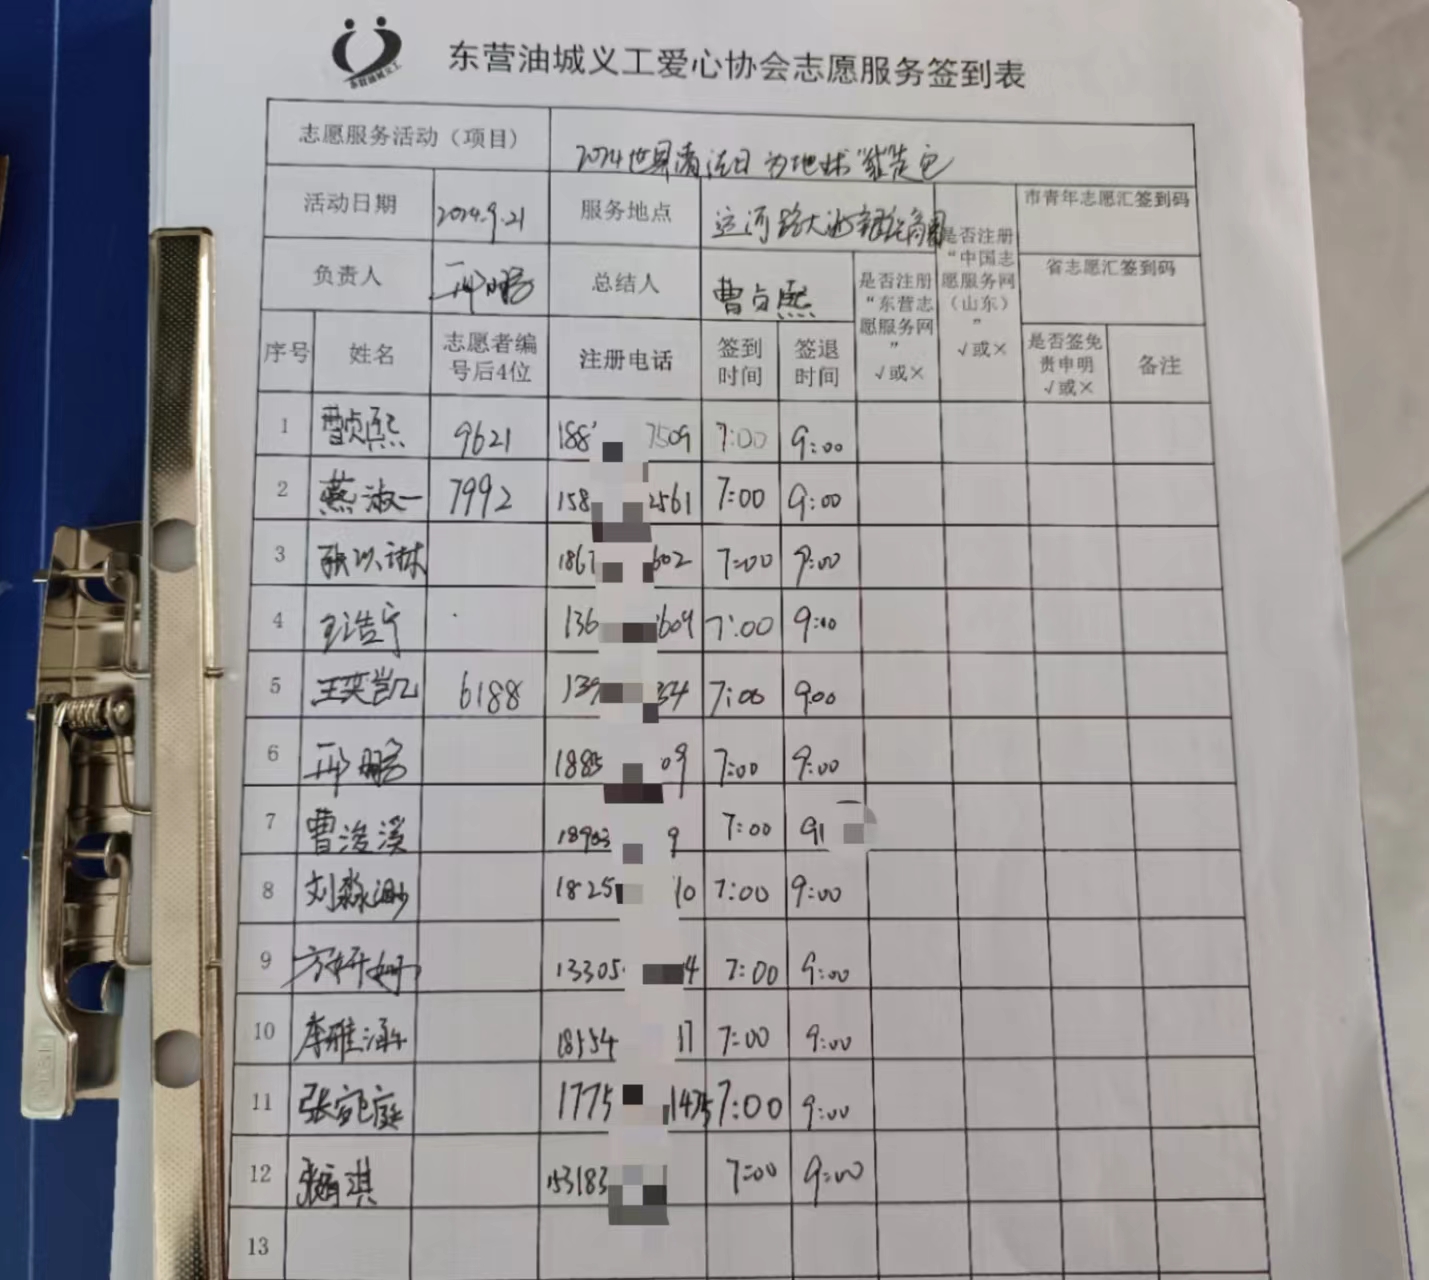 东营油城义工
东营油城义工爱心协会志愿服务签到表
志愿服务活动（项目） 2024世界清洁日 为地球
活动日期 2024.9.21 服务地点 运河路大 市青年志愿汇签到码
负责人 邱鹏 总结人 曹贞熙 是否注册“东营志愿服务网” √或× 是否注册“中国志愿服务网（山东）” √或× 省志愿汇签到码
序号 姓名 志愿者编号后4位 注册电话 签到时间 签退时间 是否签免责申明 √或× 备注
1 曹贞熙 9621 188 7509 7:00 9:00
2 燕淑一 7992 158 2561 7:00 9:00
3 1867 602 7:00 9:00
4 王浩宁 136 609 7:00 9:00
5 王奕凯 6188 139 34 7:00 9:00
6 邱鹏 1885 09 7:00 9:00
7 曹浚溪 18903 9 7:00 9
8 刘淼 1825 10 7:00 9:00
9 方妍 13305 4 7:00 9:00
10 李雅涵 18554 17 7:00 9:00
11 张宛庭 1775 1475 7:00 9:00
12 张 琪 153183 7:00 9:00
13